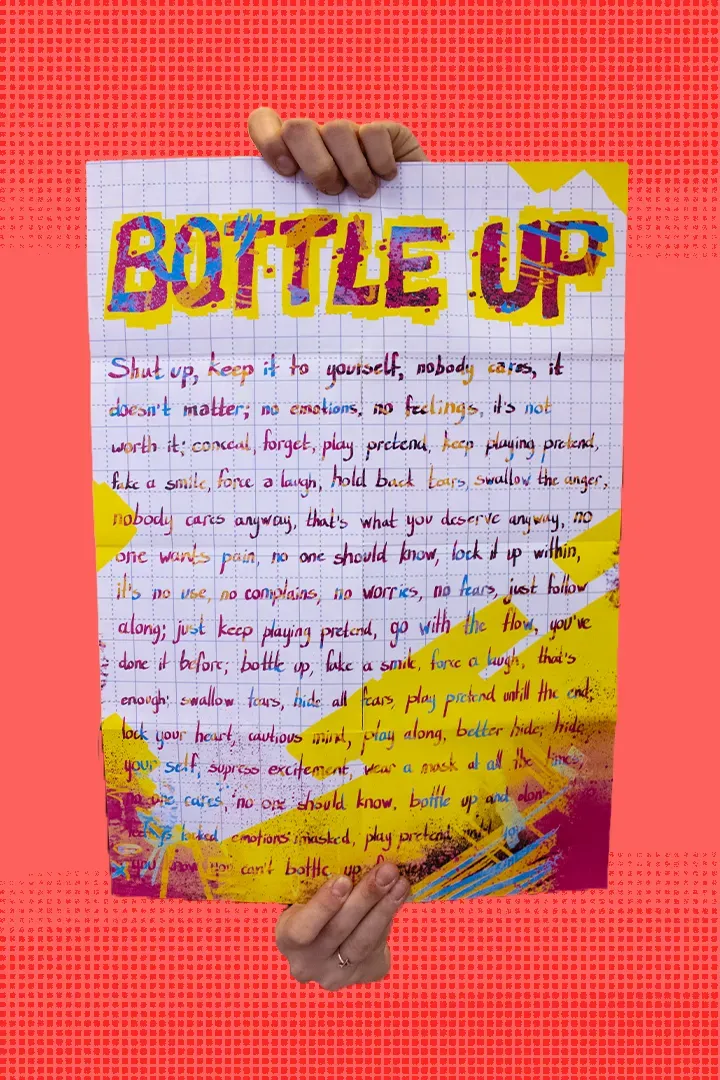 BOTTLE UP
Shut up, keep it to yourself, nobody cares, it
doesn't matter; no emotions, no feelings, it's not
worth it; conceal, forget, play pretend, keep playing pretend,
fake a smile, force a laugh, hold back tears, swallow the anger,
nobody cares anyway, that's what you deserve anyway, no
one wants pain, no one should know, lock it up within,
it's no use, no complains, no worries, no fears, just follow
along; just keep playing pretend, go with the flow, you've
done it before; bottle up, fake a smile, force a laugh, that's
enough; swallow tears, hide all fears, play pretend untill the end,
lock your heart, cautious mind, play along, better hide; hide
your self, supress excitement, wear a mask at all the times,
no one cares, no one should know, bottle up and don't
locked emotions masked, play pretend, and
you know you can't bottle up